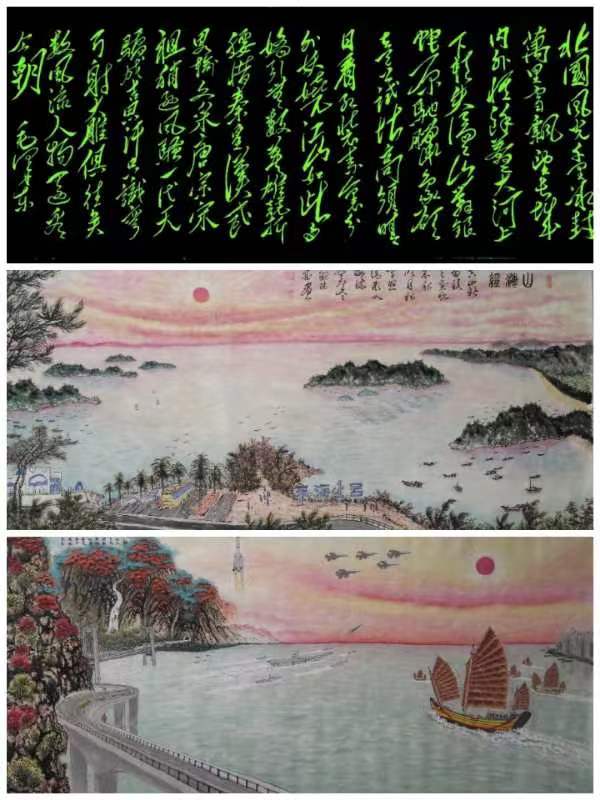 北國風光千里冰封
萬里雪飄望長城
內外惟餘莽莽大河上
下頓失滔滔山舞銀
蛇原馳臘象欲與
天公試比高須晴
日看紅裝素裹分
外妖嬈江山如此多
嬌引無數英雄競折
腰惜秦皇漢武
略輸文采唐宗宋
祖稍遜風騷一代天
驕成吉思汗只識彎
弓射大雕俱往矣
數風流人物還看
今朝 毛澤東
山海經